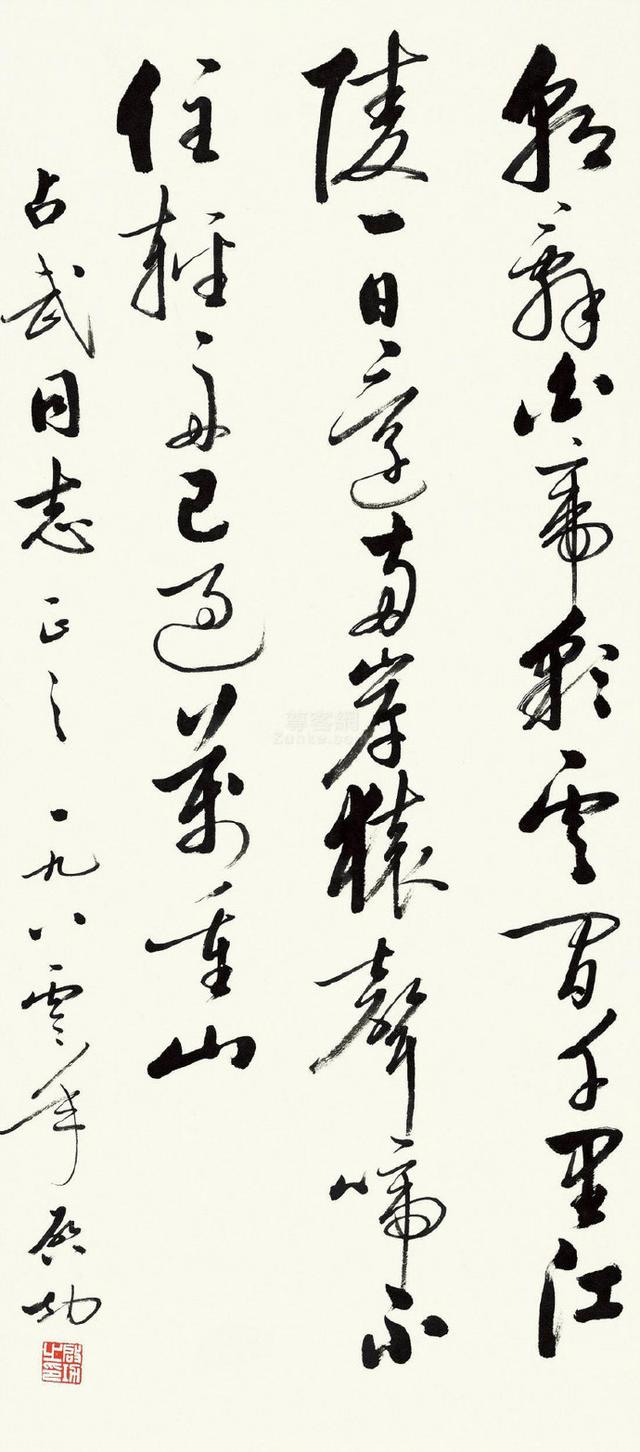 朝辭白帝彩雲間千里江
陵一日還兩岸猿聲啼不
住輕舟已過萬重山
占武同志正之 一九八零年 啟功
啟功之印
尊客網
Zunke.com